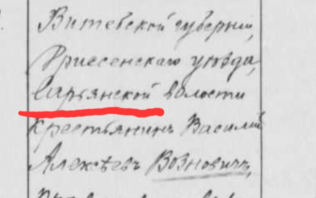 Витебской губерніи,
Дриссенскаго уѣзда,
Сарьянской волости
крестьянинъ Василій
Алексѣевъ Вознович,